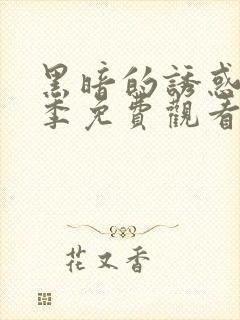 黑暗的誘惑
季免費觀看
花又香